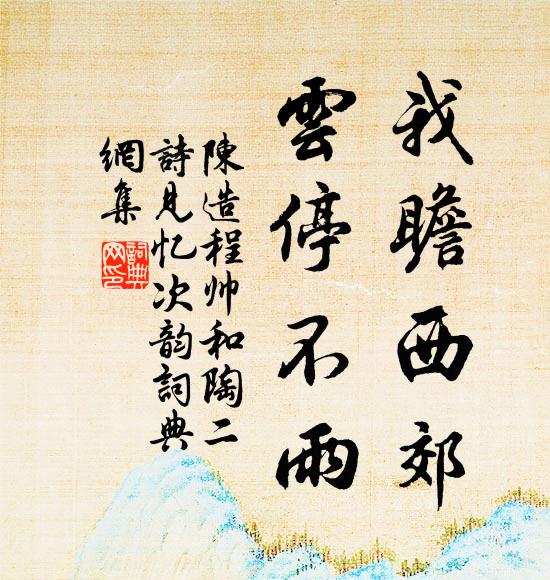 我瞻西郊
雲停不雨
陳造程帅和陶二
詩見忆次韵詞典
網集
詞典
网印